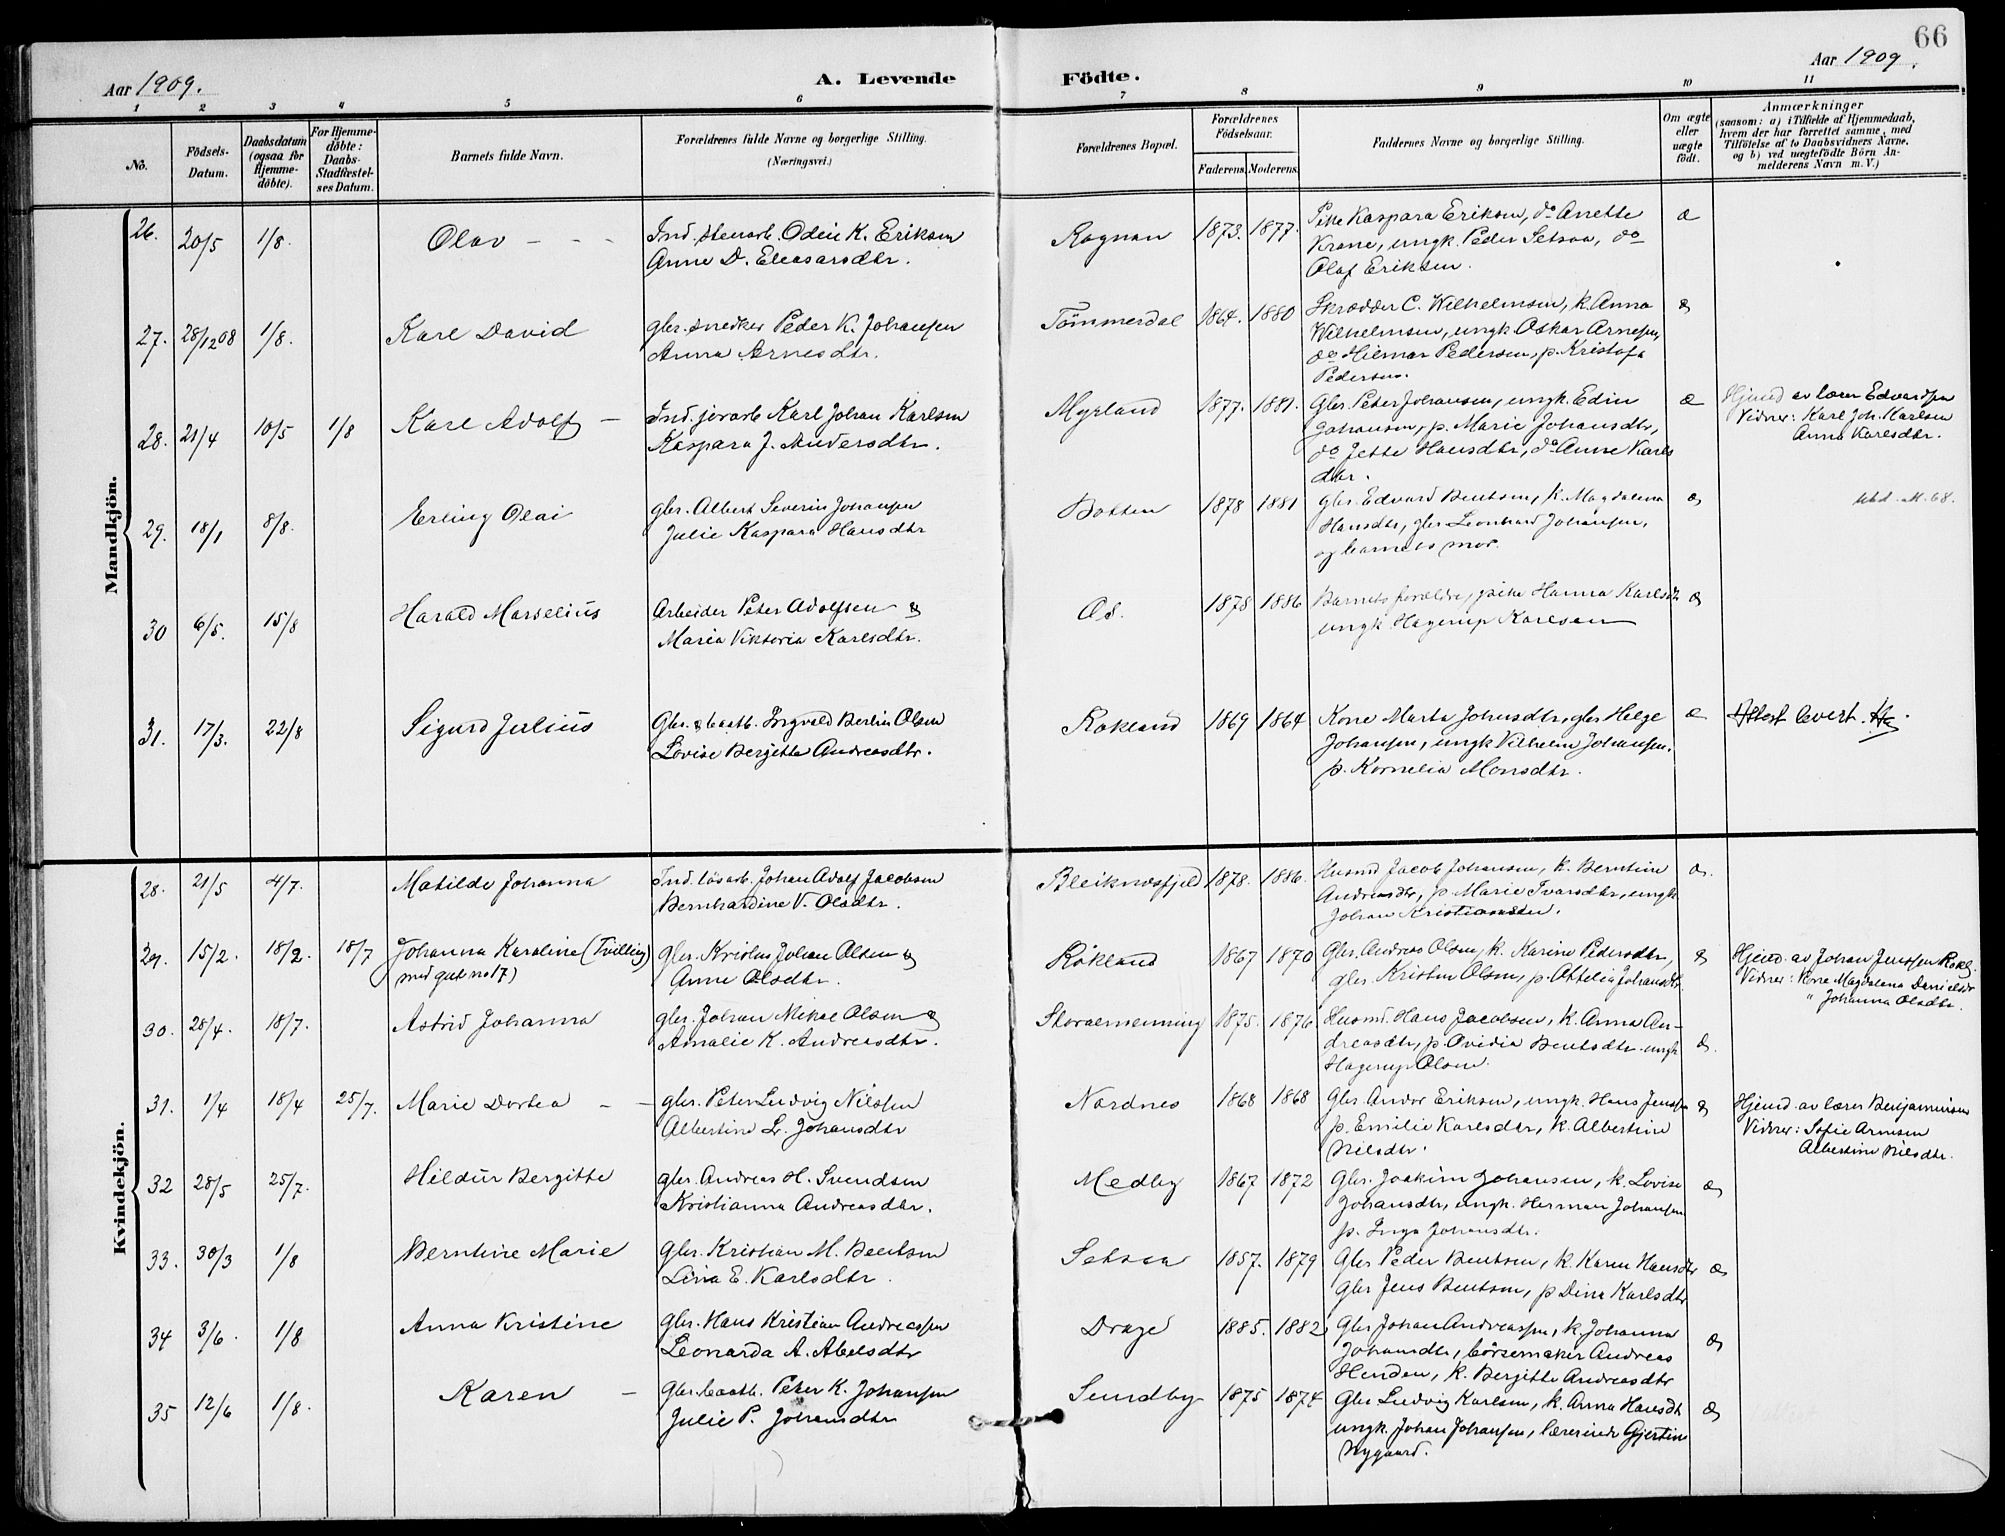 66
Aar 1909.
A. Levende
Födte.
Aar 1909.
1 2 3 4 5 6 7 8 9 10 11
No.
Födsels-
Datum.
Daabsdatum
(ogsaa for
Hjemme-
döbte).
For Hjemme-
döbte:
Daabs-
Stadfæstel-
ses Datum.
Barnets fulde Navn.
Forældrenes fulde Navne og borgerlige Stilling.
(Næringsvei.)
Forældrenes Bopæl.
Forældrenes
Födselsaar.
Faderens. Moderens.
Faddernes Navne og borgerlige Stilling.
Om ægte
eller
uægte
födt.
Anmærkninger
(saasom: a) i Tilfælde af Hjemmedaab,
hvem der har forrettet samme, med
Tilföielse af to Daabsvidners Navne,
og b) ved uægtefödte Börn An-
melderens Navn m. V.)
Mandkjön.
26. 20/5 1/8. Olav - - -
Ind. stenarb. Odin K. Eriksen
Anne D. Eleasarsdtr.
Rognan 1873. 1877.
Pike Kaspara Eriksen, do Anette
Krane, ungk. Peder Setsaa, do
Olaf Eriksen.
æ
27. 28/12 08 1/8. Karl David
gbr. snedker Peder K. Johansen
Anna Arnesdtr.
Tömmerdal 1864. 1880
Skrædder C. Wilhelmsen, k. Anna
Wilhelmsen, ungk Oskar Arnesen,
do Hilmar Pedersen, p. Kristofa
Pedersen.
æ
28. 21/4 10/5 1/8 Karl Adolf -
Ind. jernarb Karl Johan Karlsen
Kaspara J. Andersdtr.
Myrland 1877. 1881.
Gbr. Peter Johansen, ungk. Edin
Johansen, p. Marie Johansdtr,
do Jette Hansdtr, do Anne Karls
dtr.
æ
Hjemd av lærer Edvardsen
Vidner: Karl Joh. Karlsen
Anna Karlsdtr.
29. 18/1 8/8. Erling Olai
gbr. Albert Severin Johansen
Julie Kaspara Hansdtr
Botten 1878 1881
Gbr. Edvard Bentsen, k. Magdalena
Hansdtr, gbr Leonhard Johansen,
og barnets mor.
æ
30 6/5. 15/8 Harald Marselius
Arbeider Peter Adolfsen &
Maria Viktoria Karlsdtr.
Os. 1878 1886
Barnets forældre, pike Hanna Karlsdtr
ungk Hagerup Karlsen
æ
31. 17/3. 22/8 Sigurd Julius
Gbr. & baatb. Ingvald Berlin Olsen
Lovise Bergitte Andreasdtr.
Rokland 1869 1864
Kone Marta Johnsdtr, gbr Helge
Johansen, ungk Vilhelm Johansen.
p. Kornelia Monsdtr.
æ
Kvindekjön.
28. 21/5 4/7. Matilde Johanna
Ind. lösarb. Johan Adolf Jacobsen
Bernhardine V. Olsdtr.
Bleiknesfjeld 1878. 1886.
Husmd Jacob Johansen, k. Berntine
Andreasdtr, p. Marie Ivarsdtr, ungk
Johan Kristiansen.
æ.
29. 15/2. 18/2. 18/7 Johanna Karoline (Tvilling
med gut no 17)
gbr. Kristen Johan Olsen &
Anne Olsdtr.
Rökland 1867 1870
Gbr. Andreas Olsen, k. Karine Pedersdtr,
gbr Kristen Olsen, p. Ottelia Johansdtr
æ
Hjemd. av Johan Jenssen Rökl.
Vidner: Kone Magdalena Danielsdtr
" Johanna Olsdtr.
30. 28/4. 18/7. Astrid Johanna
gbr. Johan Mikal Olsen &
Amalie K. Andreasdtr.
Storalmenning 1875. 1876
Husmd. Hans Jacobsen, k. Anna An-
dreasdtr, p. Ovidia Bentsdtr. ungk
Hagerup Olsen.
æ.
31. 1/4 18/4 25/7. Marie Dortea - -
gbr. Peter Ludvig Nilssen
Albertine L. Johansdtr
Nordnes 1868 1868
Gbr Andor Eriksen, ungk. Hans Jenssen
p. Emilie Karlsdtr, k. Albertine
Nilsdtr.
æ
Hjemd. av lærer Benjaminsen
Vidner: Sofie Arnesen
Albertine Nilsdtr.
32 28/5 25/7. Hildur Bergitte
gbr. Andreas H. Svendsen
Kristianna Andreasdtr.
Medby 1867 1872
Gbr. Joakim Johansen, k. Lovise
Johansdtr, ungk. Herman Johansen
p. Inga Johansdtr.
æ
33. 30/3 1/8 Berntine Marie
Gbr. Kristian M. Bentsen
Lina E. Karlsdtr.
Setsaa 1857. 1879
Gbr Peder Bentsen, k Karen Hansdtr
Gbr Jens Bentsen, p Dina Karlsdtr
æ
34 3/6. 1/8 Anna Kristine
Gbr. Hans Kristian Andreassen
Leonarda A. Abelsdtr
Drage 1885. 1882
Gbr Johan Andreassen, k. Johanna
Johansdtr, börsemaker Andreas
Henden, k. Bergitte Andreasdtr
æ
35 12/6 1/8. Karen -
Gbr. baatb. Peter K. Johansen
Julie P. Johansdtr
Sundby 1875 1874
Gbr Ludvig Karlsen, k. Anna Hansdtr
ungk. Johan Johansen, lærerinde Gjertine
Nygaard.
æ